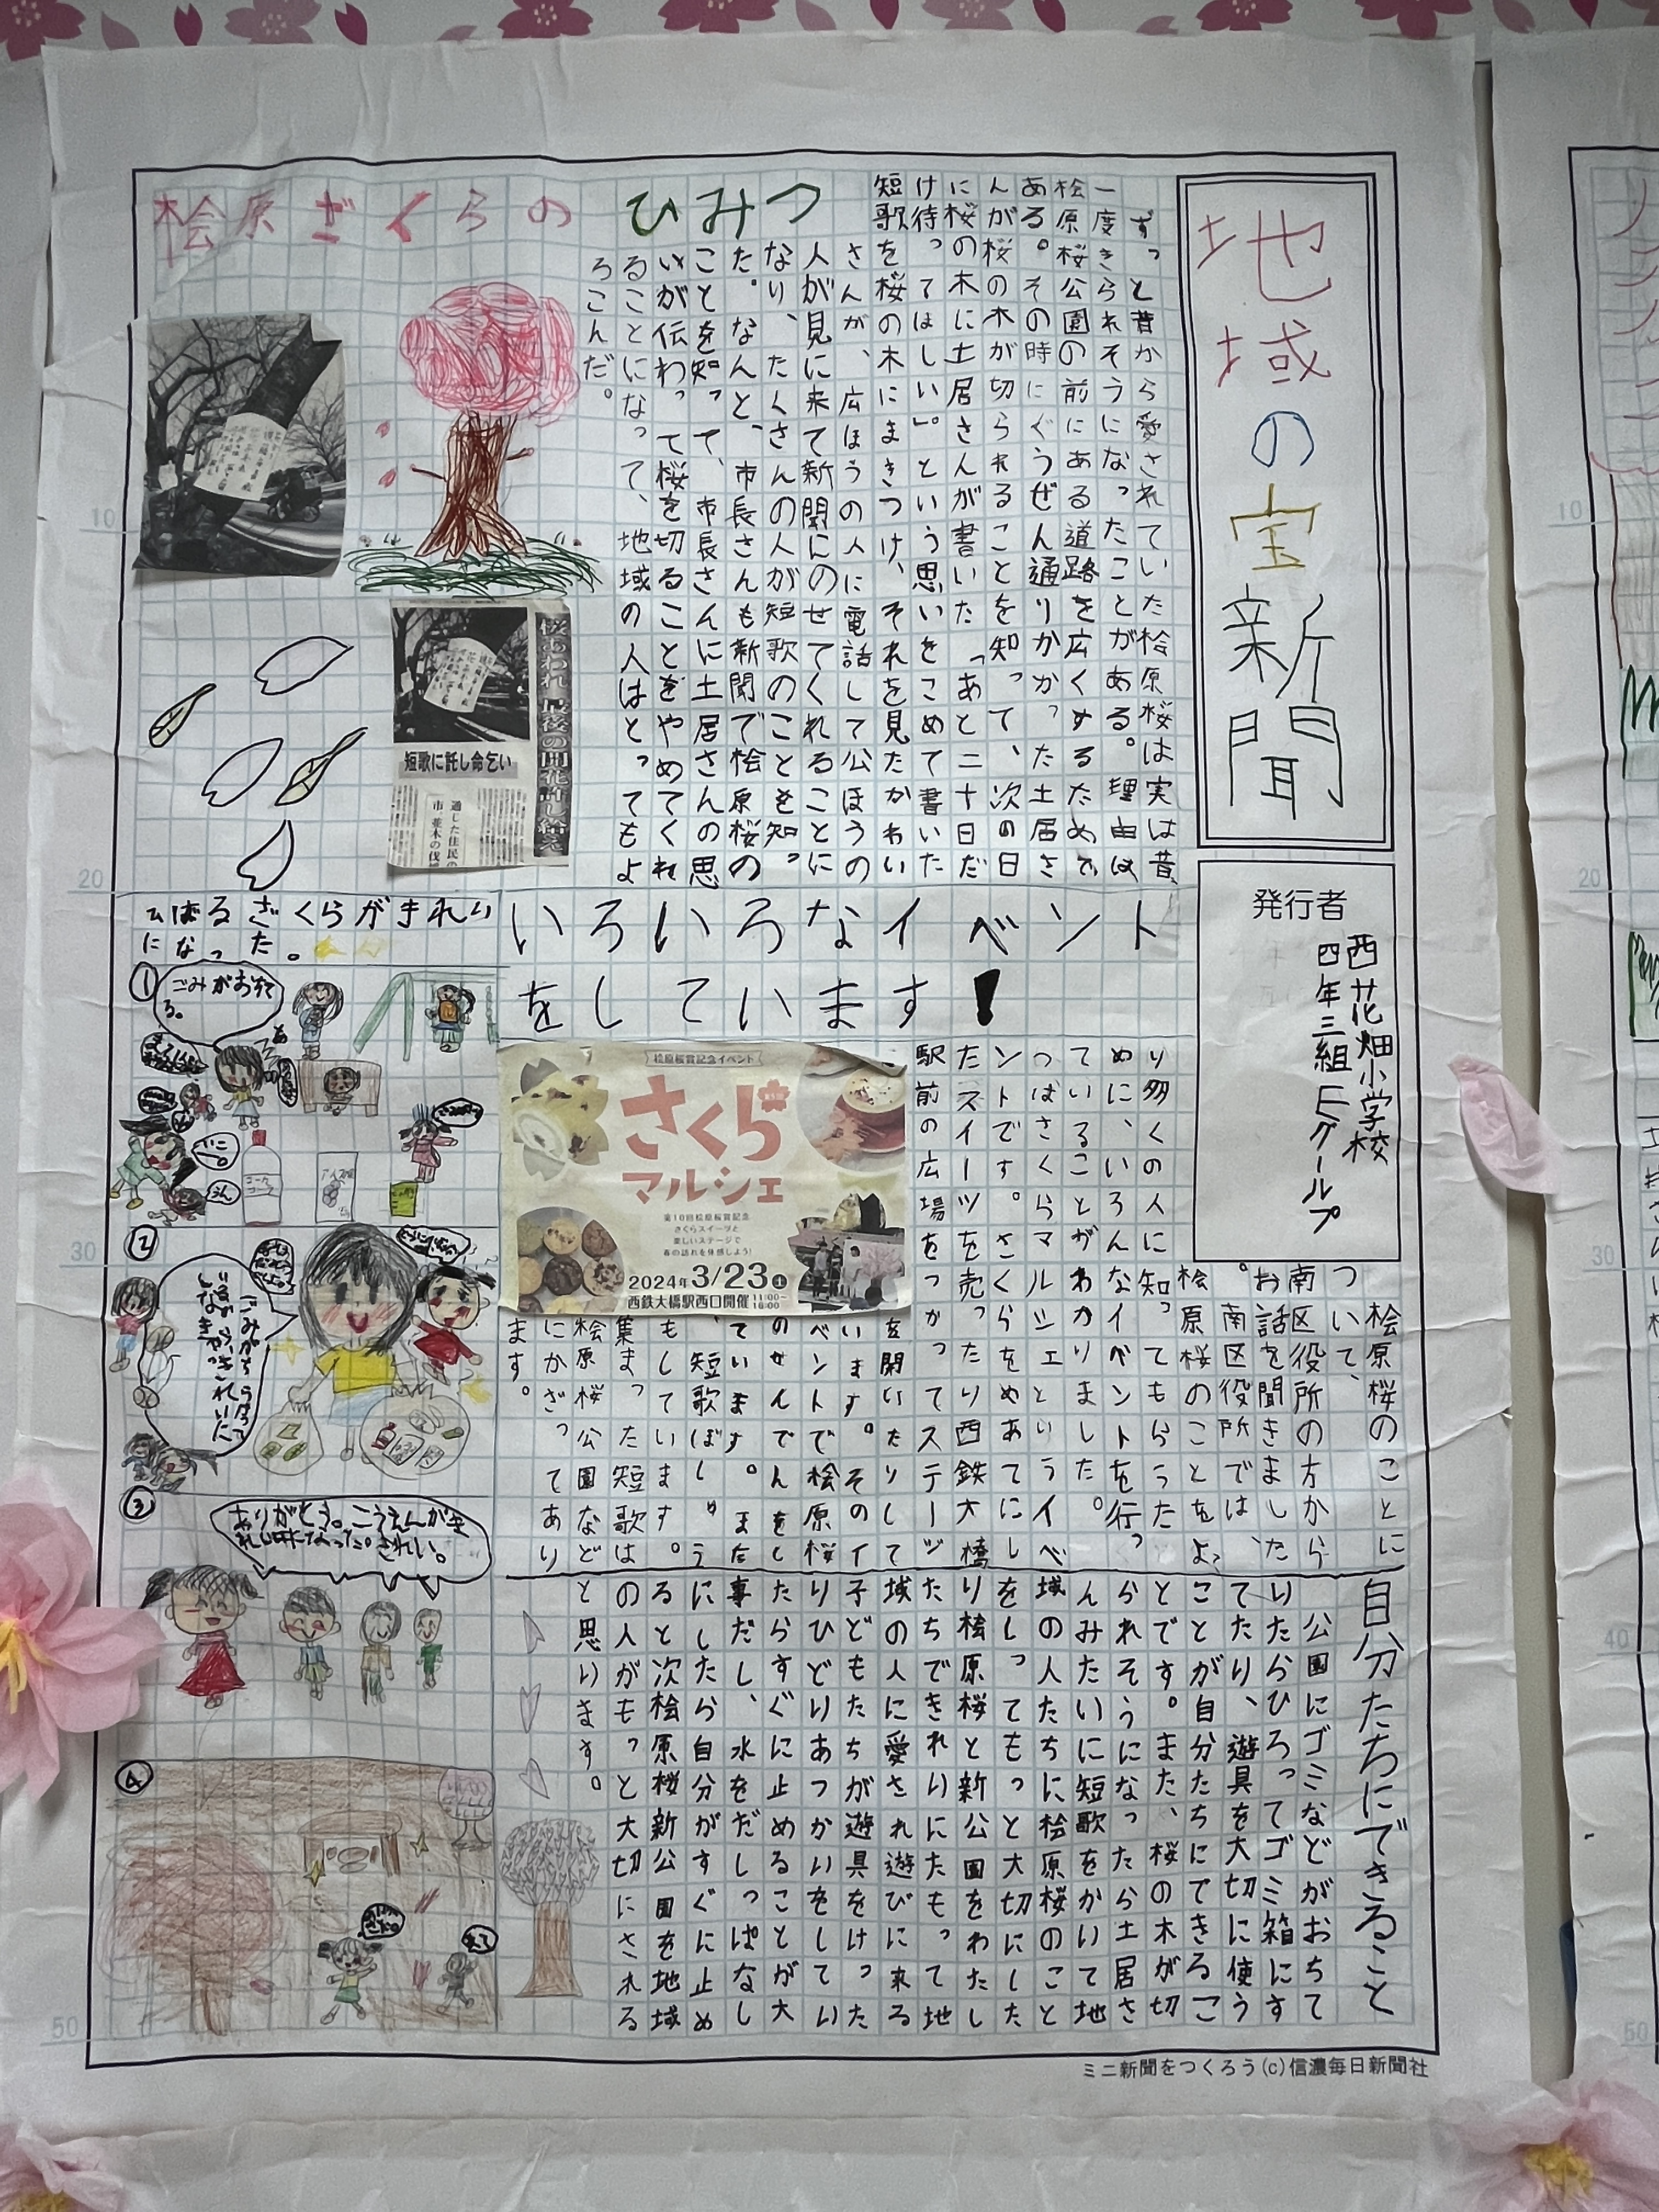 地域の宝新聞
発行者
西花畑小学校
四年三組
グループ
桧原ざくらのひみつ
ずっと昔から愛されていた桧原桜は実は昔、
一度きられそうになったことがある。理由は
桧原桜公園の前にある道路を広くするためで
ある。その時にぐうぜん通りかかった土居さ
んが桜の木が切られることを知って、次の日
に桜の木に土居さんが書いた「あと二十日だ
け待ってほしい」。という思いをこめて書いた
短歌を桜の木にまきつけ、それを見たかわい
さんが、広ほうの人に電話して公ほうの
人が見に来て新聞にのせてくれることに
なり、たくさんの人が短歌のことを知っ
た。なんと、市長さんも新聞で桧原桜の
ことを知って、市長さんに土居さんの思
いが伝わって桜を切ることをやめてくれ
ることになって、地域の人はとってもよ
ろこんだ。
桜あわれ 最後の開花許し給え
短歌に託し命乞い
通した住民の
市、並木の伐
いろいろなイベント
をしています!
桧原桜のことに
ついて、
南区役所の方から
お話を聞きました
。南区役所では、
桧原桜のことをよ
り多くの人に知ってもらうた
めに、いろんなイベントを行っ
ていることがわかりました。
つばさくらマルシェというイベ
ントです。さくらをめあてにし
たスイーツを売ったり西鉄大橋
駅前の広場をつかってステージ
を開いたりして
います。そのイ
ベントで桧原桜
のせんでんをし
ています。また
、短歌ぼしゅう
もしています。
集まった短歌は
桧原桜公園など
にかざってあり
ます。
桧原桜賞記念イベント
さくら
マルシェ
第10回桧原桜賞記念
さくらスイーツと
楽しいステージで
春の訪れを体感しよう!
2024年3/23土
11:00～16:00
西鉄大橋駅西口開催
自分たちにできること
公園にゴミなどがおちて
いたらひろってゴミ箱にす
てたり、遊具を大切に使う
ことが自分たちにできるこ
とです。また、桜の木が切
られそうになったら土居さ
んみたいに短歌をかいて地
域の人たちに桧原桜のこと
をしってもっと大切にした
り桧原桜と新公園をわたし
たちできれいにたもって地
域の人に愛され遊びに来る
子どもたちが遊具をけった
りひどりあつかいをしてい
たらすぐに止めることが大
事だし、水をだしっぱなし
にしたら自分がすぐに止め
ると次桧原桜新公園を地域
の人がもっと大切にされる
と思います。
ひばるざくらがきれい
になった。
①
ごみがおちて
る。
②
③
ありがとう。こうえんがき
れいになった。きれい。
④
10
20
30
50
ミニ新聞をつくろう(c)信濃毎日新聞社
10
20
30
40
50